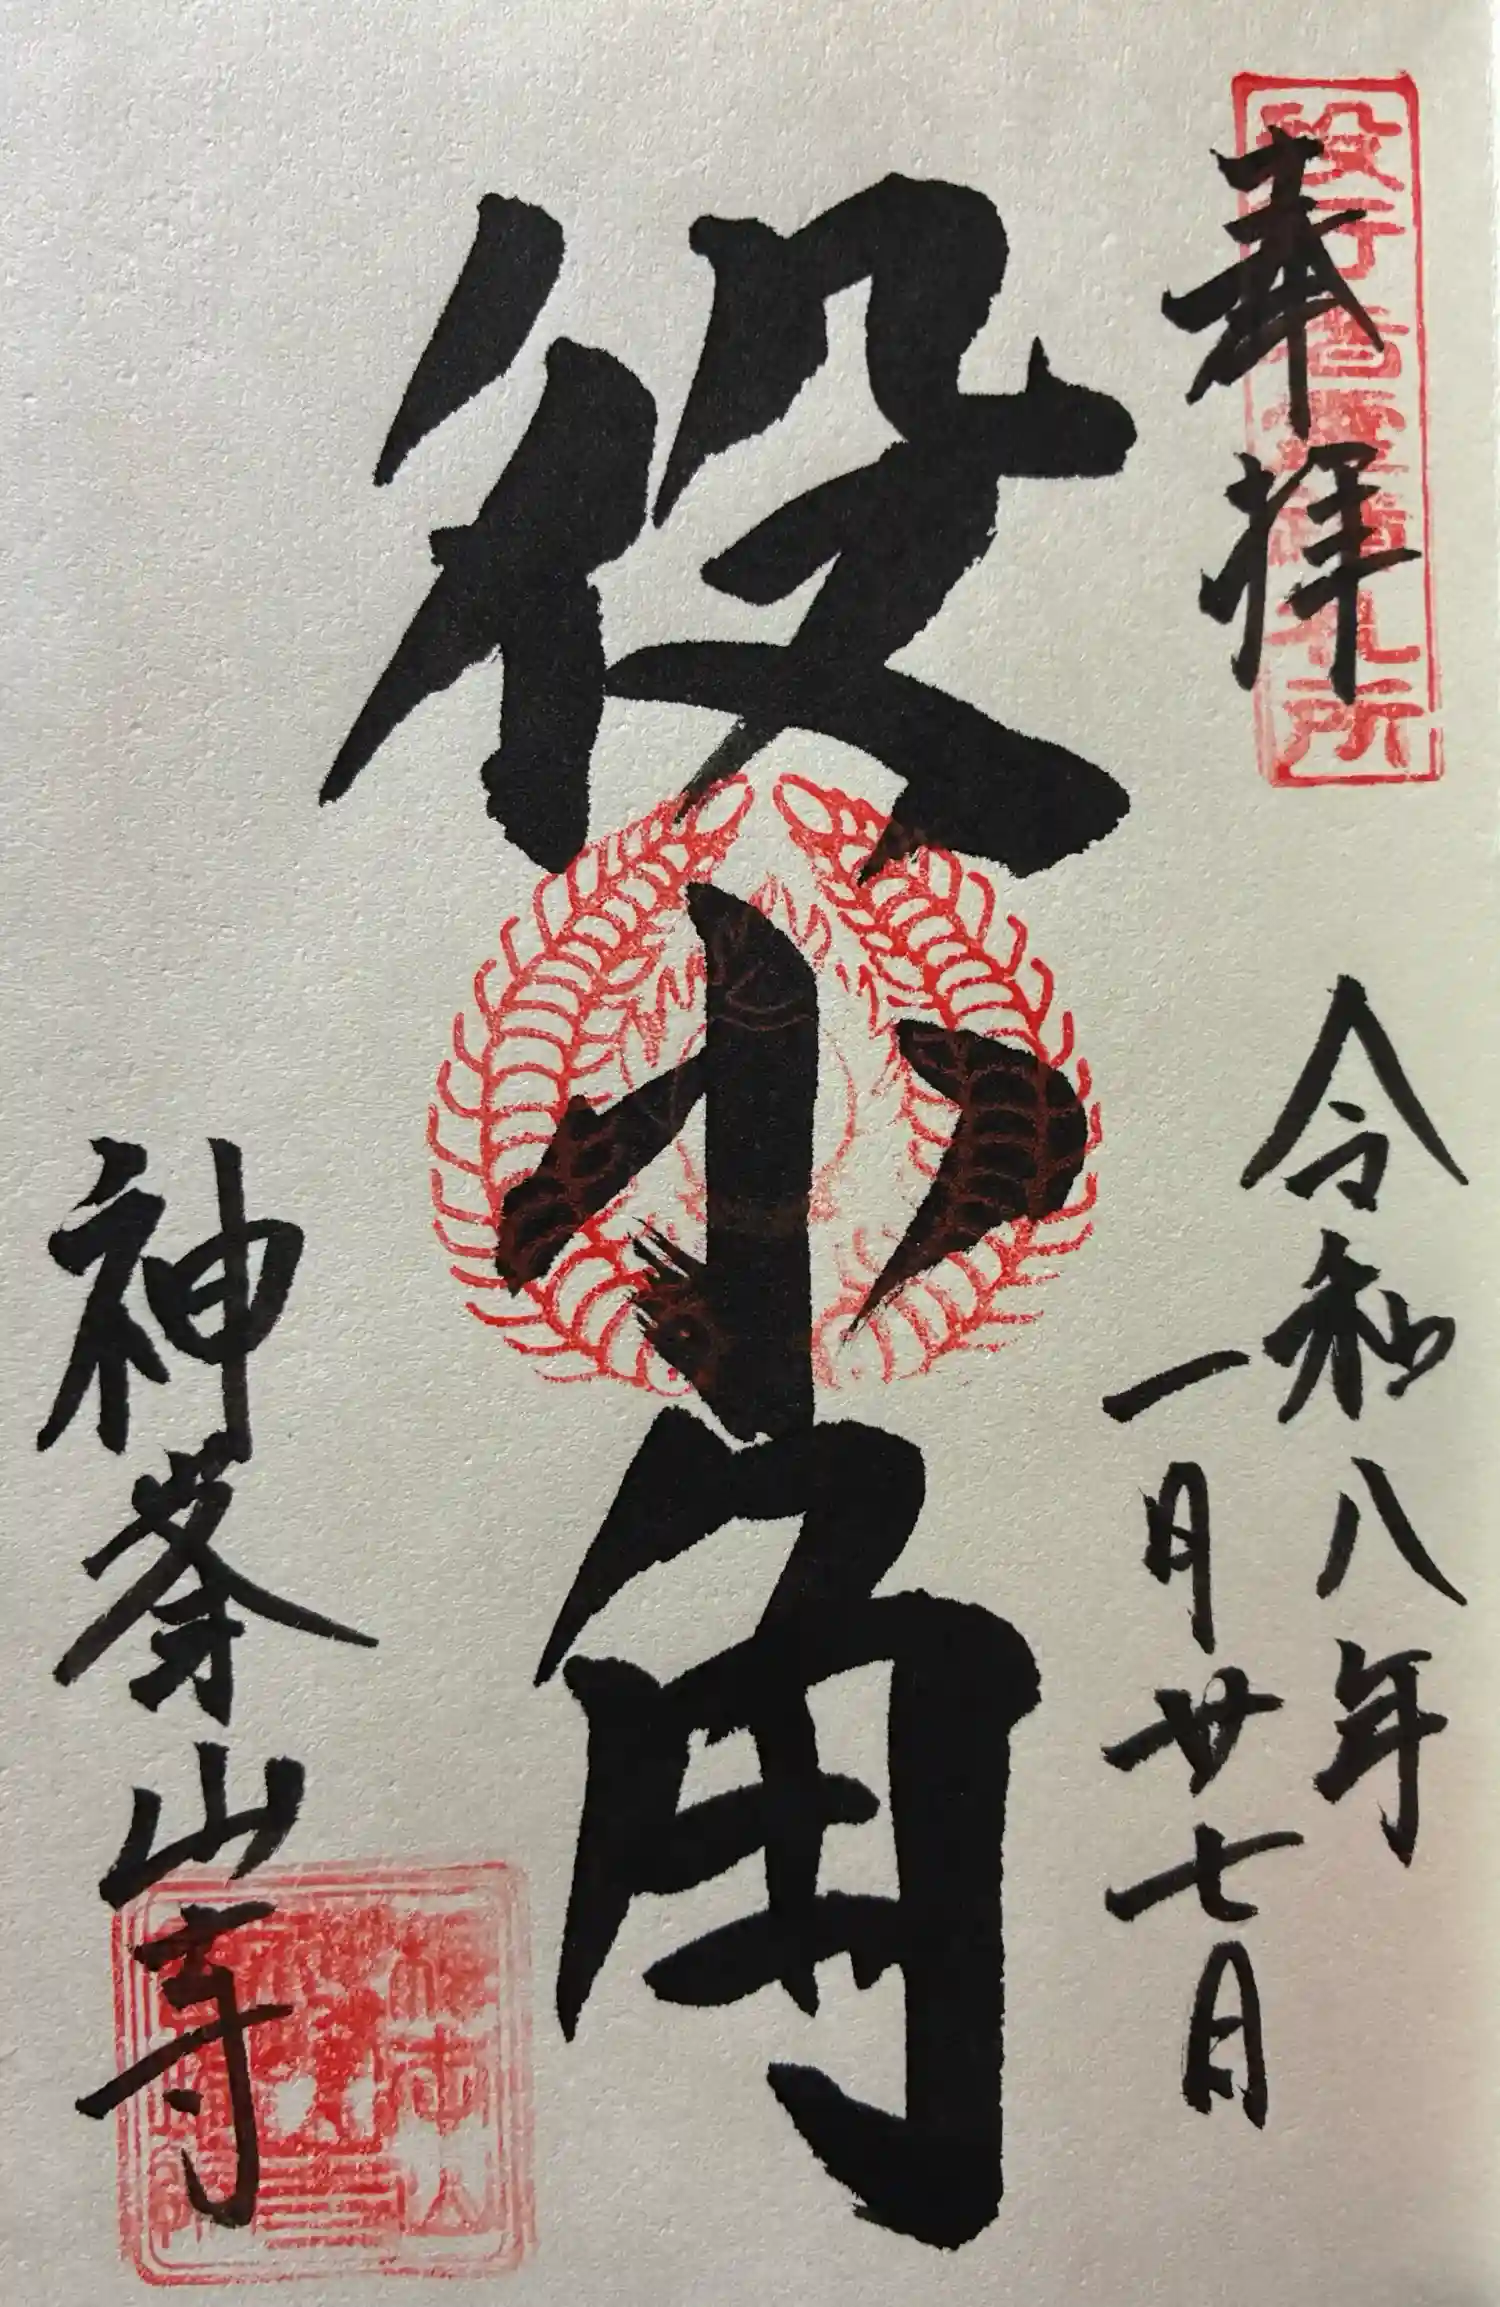 奉拝
令和八年
一月廿七日
役小角
神峯山寺
役行者霊蹟札所